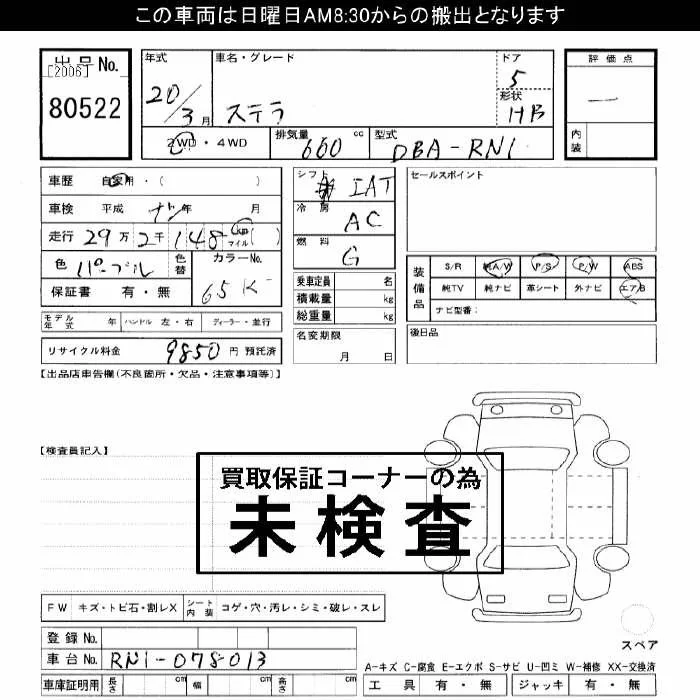 この車両は日曜日AM8:30からの搬出となります
出品No.
[2006]
80522
年式 20/3月
車名・グレード ステラ
ドア 5
形状 HB
2WD・4WD
排気量 660 cc
型式 DBA-RN1
評価点 —
内装
車歴 自家用・( )
車検 平成 ナシ年 月
走行 29万2千148 km マイル ( )
色 パープル 色替
カラーNo. 65K
保証書 有・無
シフト IAT
冷房 AC
燃料 G
乗車定員 名
積載量 kg
総重量 kg
セールスポイント
装備品
S/R 純A/W P/S P/W ABS
純TV 純ナビ 革シート 外ナビ エアB
ナビ型番:
モデル年式 年 ハンドル 左・右 ディーラー・並行
名変期限 月 日
後日品
リサイクル料金 9850 円 預託済
【出品店車告欄(不良箇所・欠品・注意事項等)】
【検査員記入】
買取保証コーナーの為
未検査
FW キズ・トビ石・割レX シート内装 コゲ・穴・汚レ・シミ・破レ・スレ
登録No.
車台No. RN1-078013
車庫証明用 長さ cm 幅 cm 高さ cm
スペア
A-キズ C-腐食 E-エクボ S-サビ U-凹ミ W-補修 XX-交換済
工具 有・無 ジャッキ 有・無